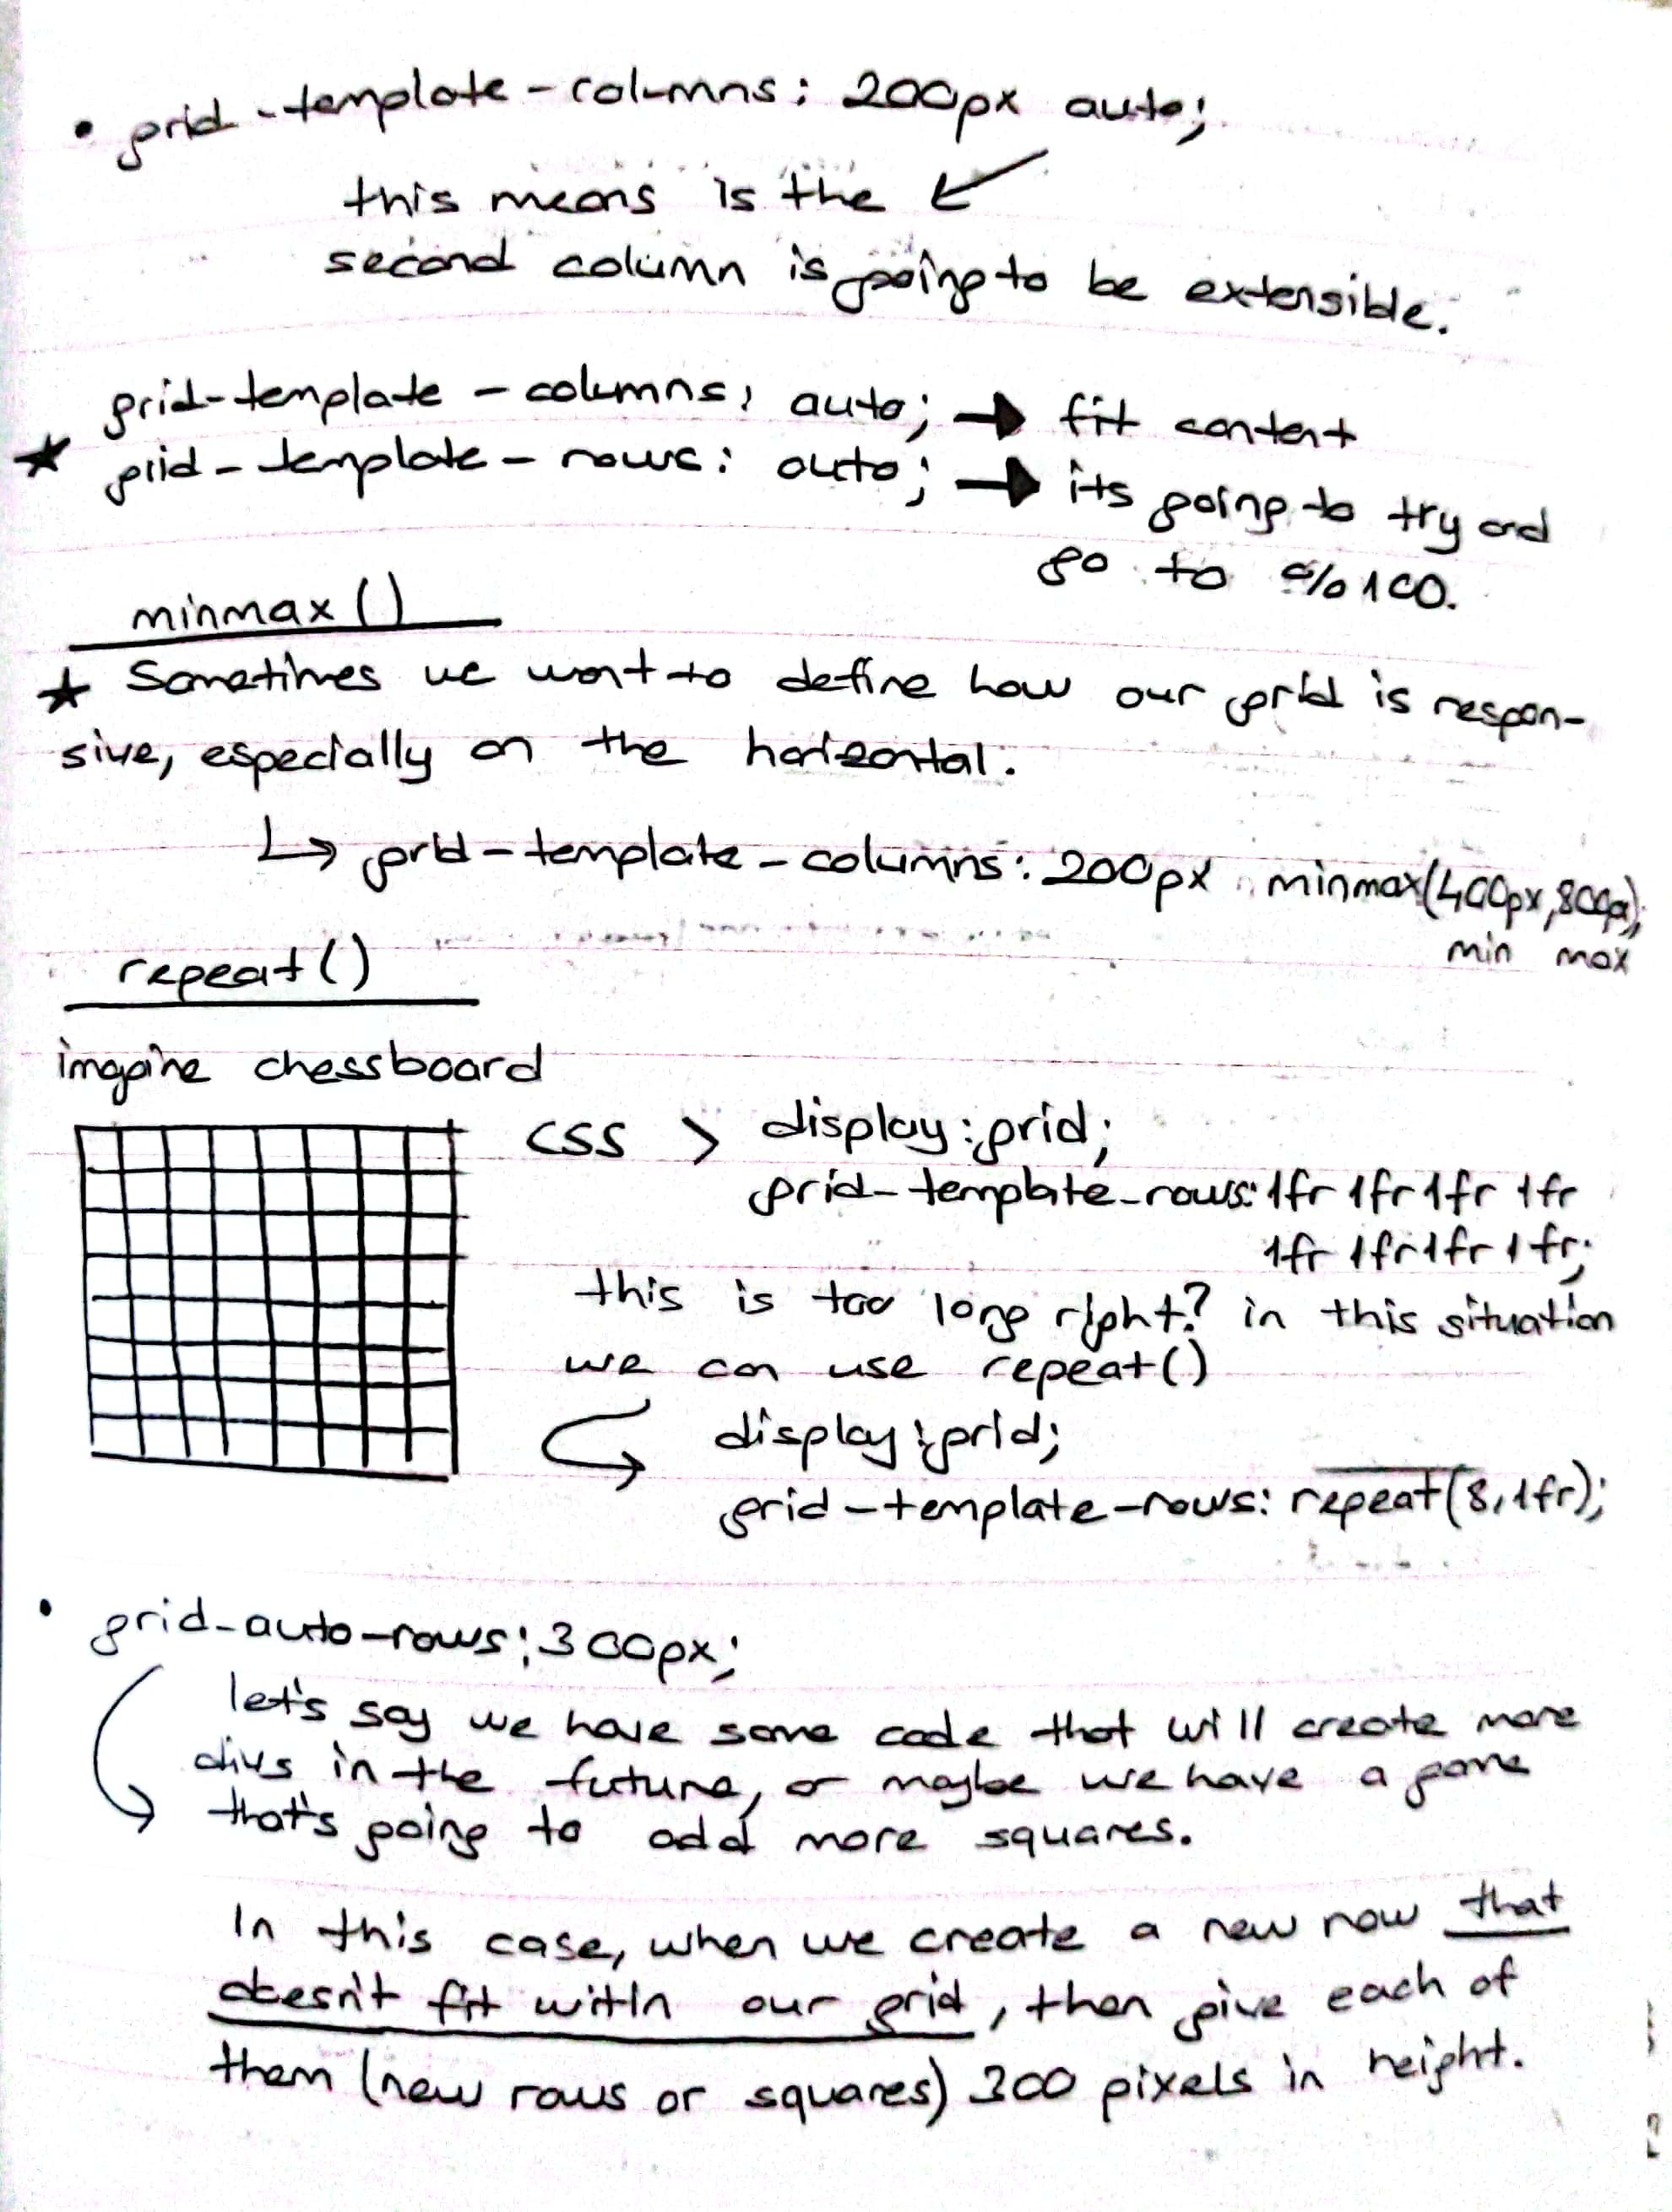 • grid-template-columns: 200px auto;
this means is the
second column is going to be extensible.
grid-template-columns: auto; → fit content
★ grid-template-rows: auto; → its going to try and
go to %100.
minmax()
★ Sometimes we want to define how our grid is respon-
sive, especially on the horizontal.
↳ grid-template-columns: 200px minmax(400px,800px);
min max
repeat()
imagine chessboard
css > display: grid;
grid-template-rows: 1fr 1fr 1fr 1fr
1fr 1fr 1fr 1fr;
this is too long right? in this situation
we can use repeat()
display: grid;
grid-template-rows: repeat(8, 1fr);
• grid-auto-rows: 300px;
let's say we have some code that will create more
divs in the future, or maybe we have a game
that's going to add more squares.
In this case, when we create a new row that
doesn't fit within our grid, then give each of
them (new rows or squares) 300 pixels in height.